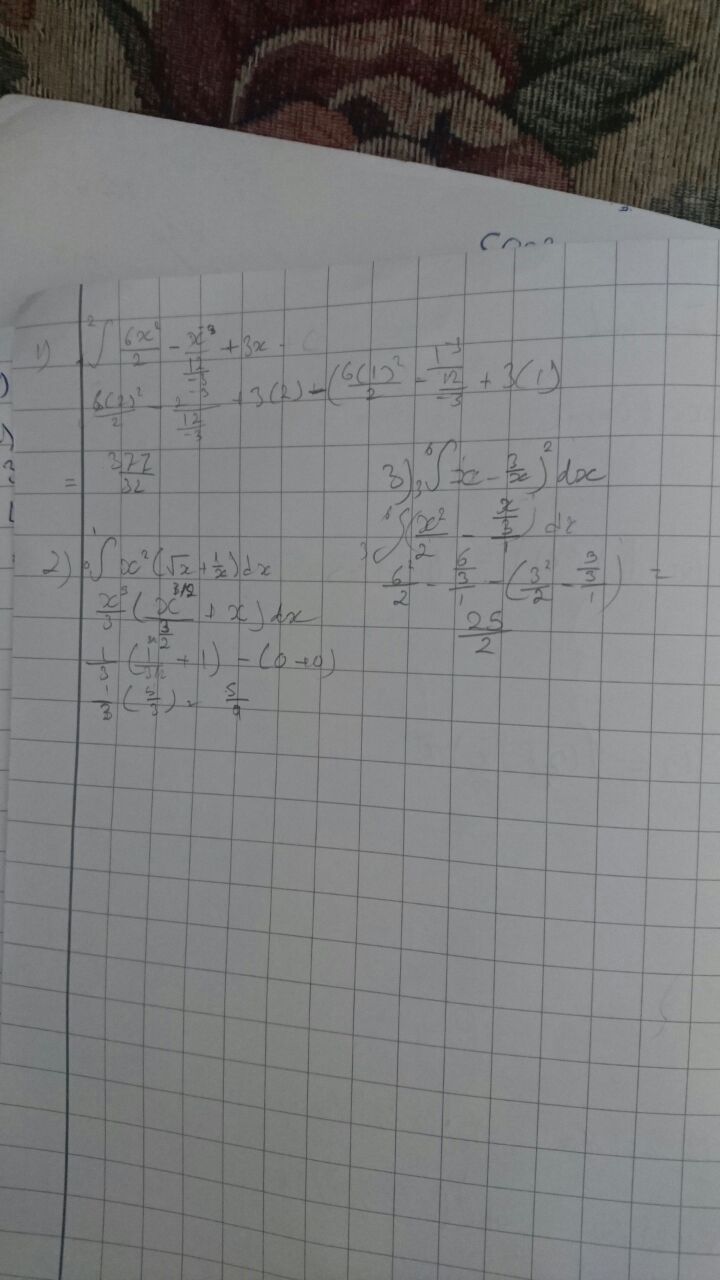 1) ₁²∫ 6x²/2 - x⁻³/(12/-3) + 3x -
6(2)²/2 - 2⁻³/(12/-3) + 3(2) - (6(1)²/2 - 1⁻³/(12/-3) + 3(1)
= 377/32
2) ₀¹∫ x²(√x + 1/x) dx
x³/3 (x^(3/2)/(3/2) + x) dx
1/3 (1^(3/2)/(3/2) + 1) - (0+0)
1/3 (5/3) = 5/9
3) ₃⁶∫ (x - 3/x)² dx
₃⁶∫ (x²/2 - (x/3)/1) dx
6²/2 - (6/3)/1 - (3²/2 - (3/3)/1) =
25/2